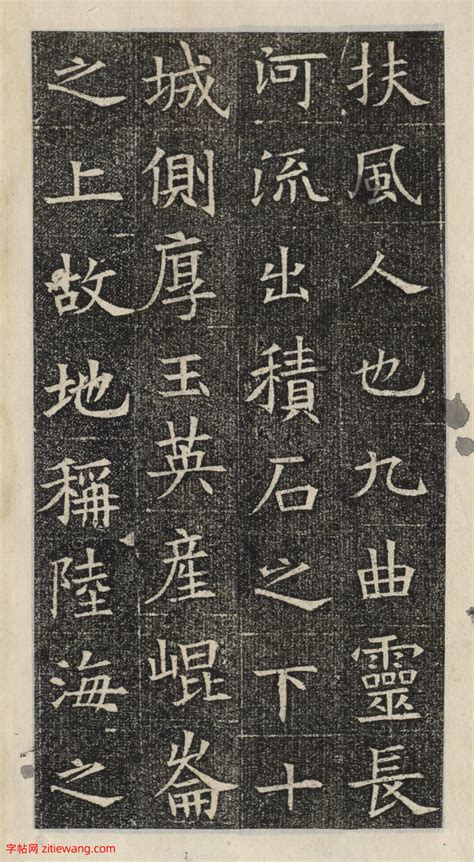 扶風人也九曲靈長
河流出積石之下十
城側厚玉英産崐崙
之上故地稱陸海之
字帖网 zitiewang.com